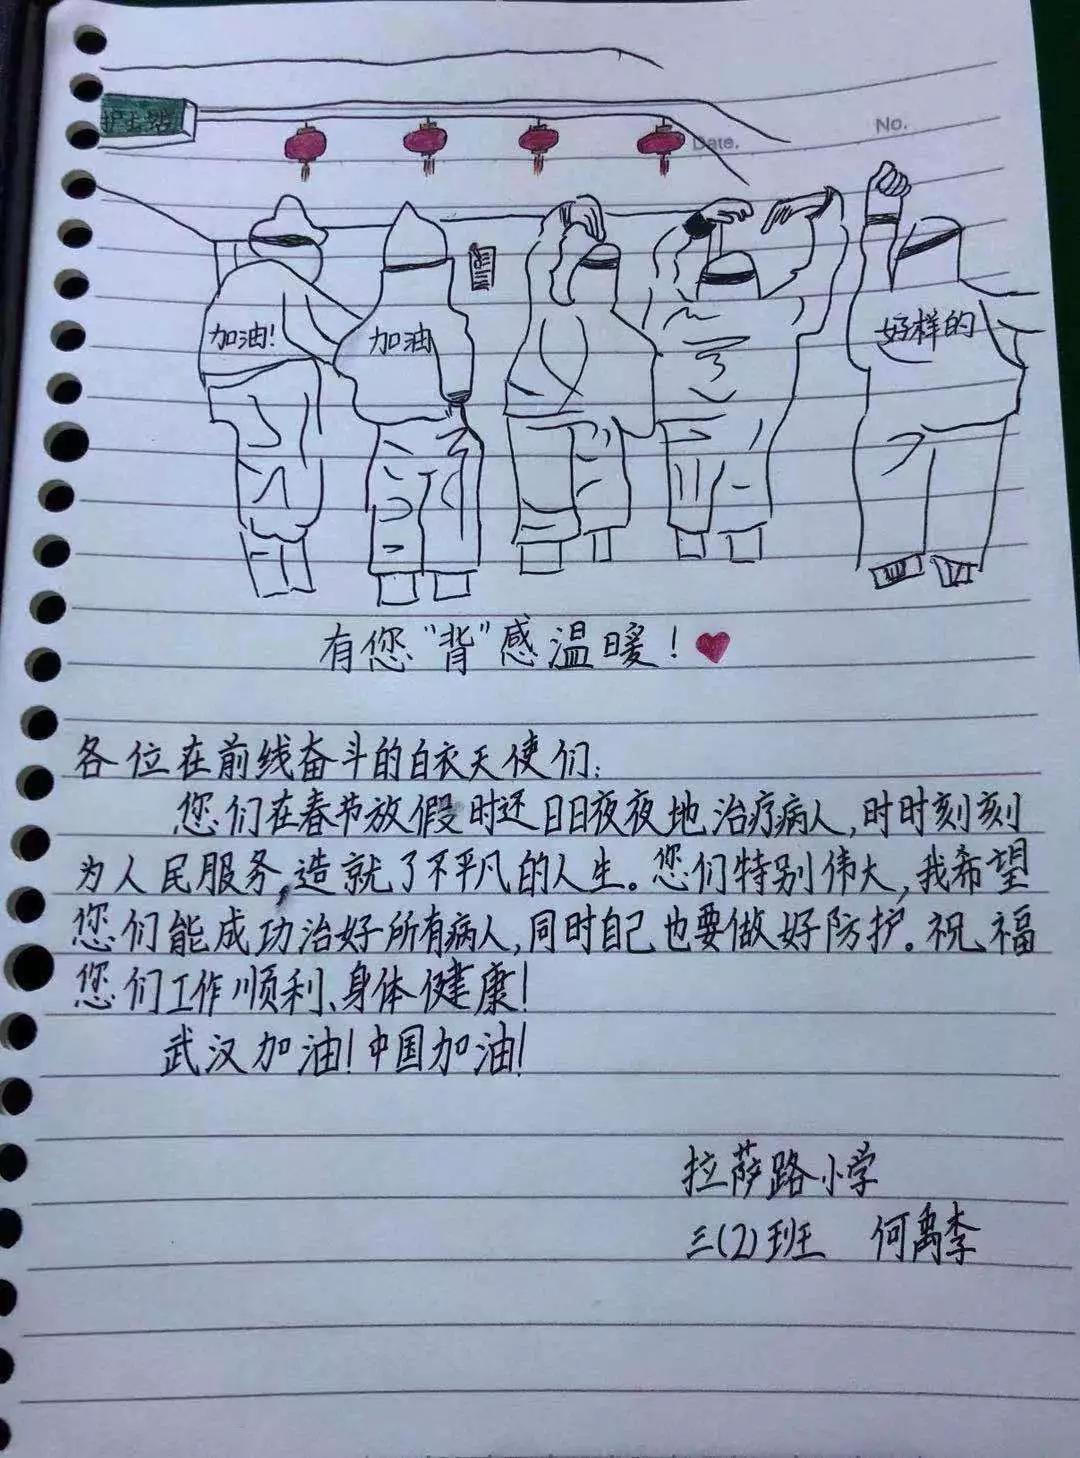 护士站
No.
Date.
加油!
加油
好样的
有您“背”感温暖!
各位在前线奋斗的白衣天使们:
您们在春节放假时还日日夜夜地治疗病人,时时刻刻
为人民服务,造就了不平凡的人生。您们特别伟大,我希望
您们能成功治好所有病人,同时自己也要做好防护。祝福
您们工作顺利、身体健康!
武汉加油!中国加油!
拉萨路小学
三(2)班 何禹李